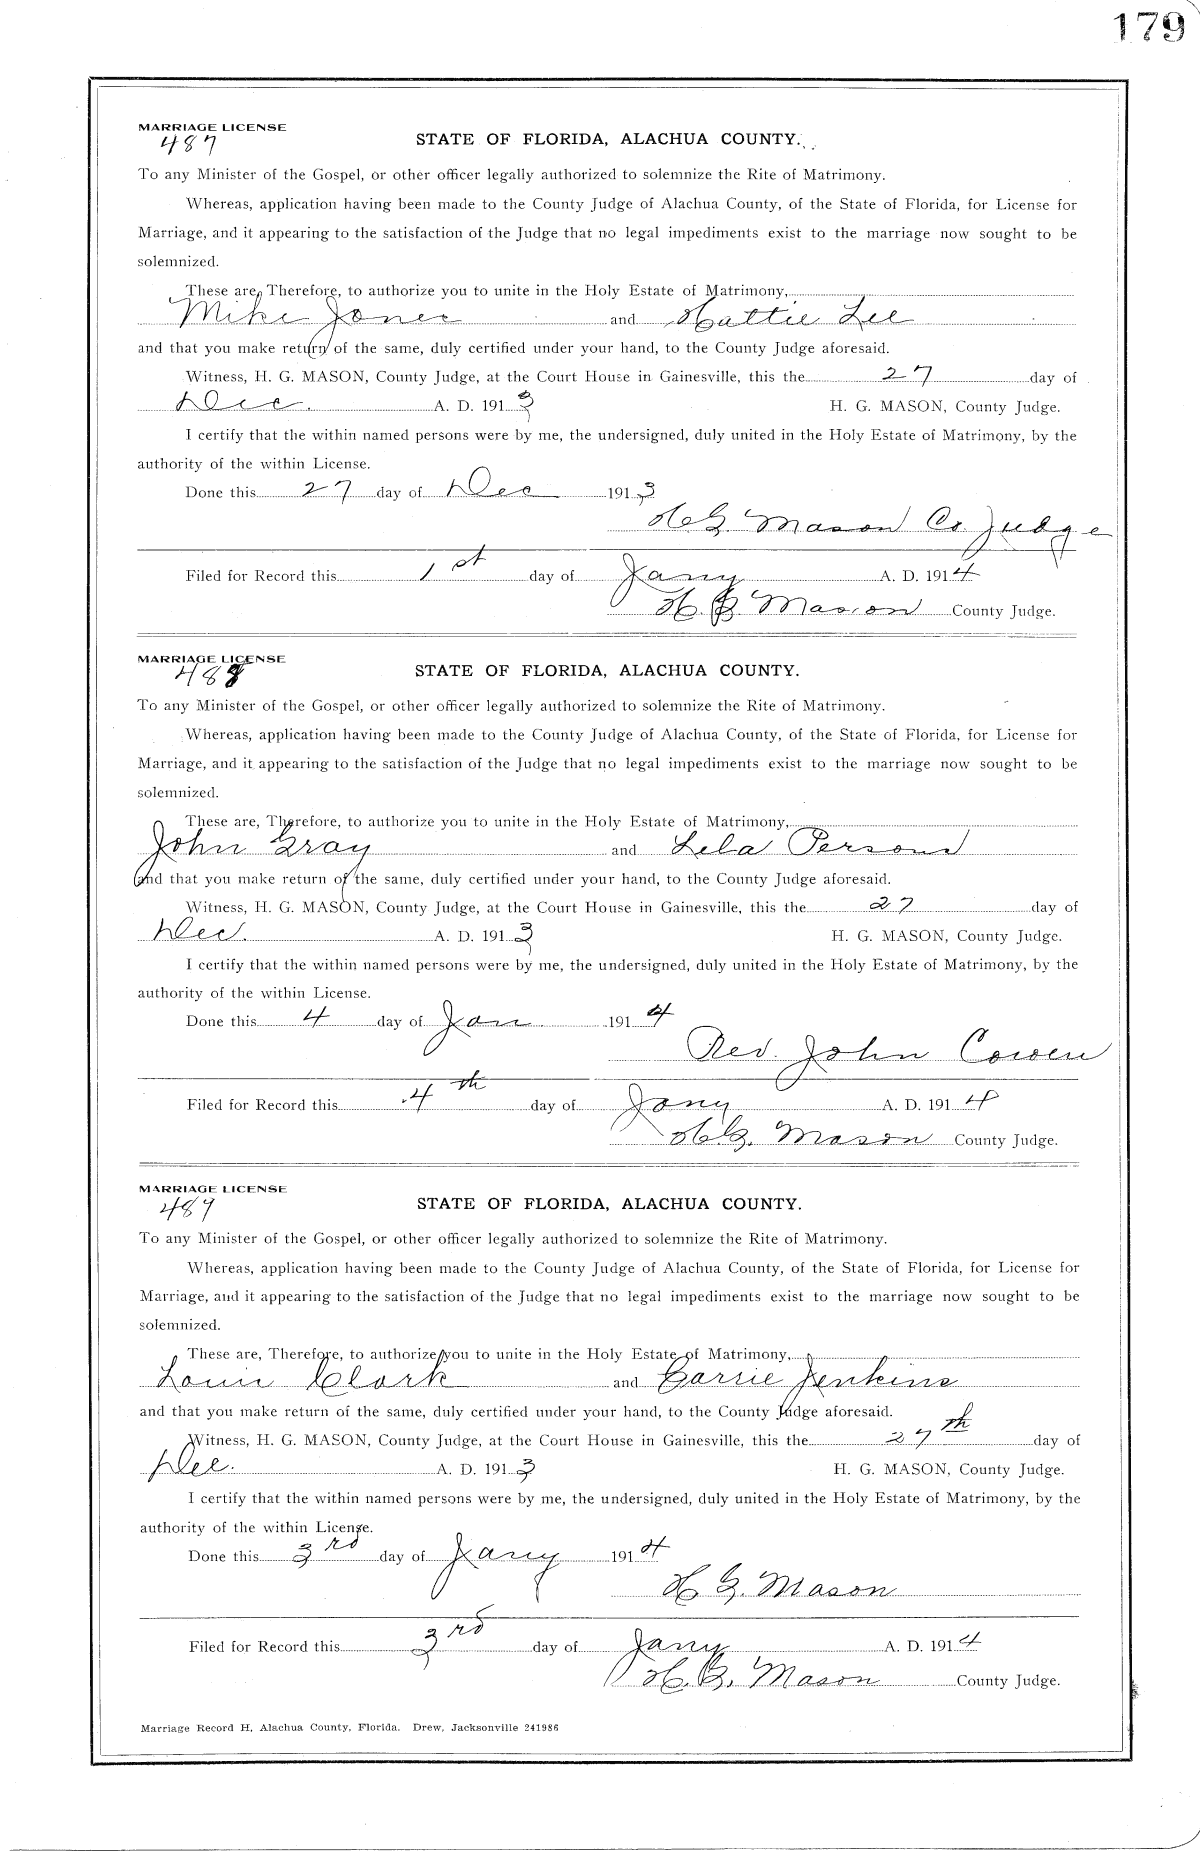 179
MARRIAGE LICENSE
487
STATE OF FLORIDA, ALACHUA COUNTY.
To any Minister of the Gospel, or other officer legally authorized to solemnize the Rite of Matrimony.
Whereas, application having been made to the County Judge of Alachua County, of the State of Florida, for License for
Marriage, and it appearing to the satisfaction of the Judge that no legal impediments exist to the marriage now sought to be
solemnized.
These are, Therefore, to authorize you to unite in the Holy Estate of Matrimony,
Mike Jones and Hattie Lee
and that you make return of the same, duly certified under your hand, to the County Judge aforesaid.
Witness, H. G. MASON, County Judge, at the Court House in Gainesville, this the 27 day of
Dec. A. D. 1913 H. G. MASON, County Judge.
I certify that the within named persons were by me, the undersigned, duly united in the Holy Estate of Matrimony, by the
authority of the within License.
Done this 27 day of Dec 1913
H G. Mason Co. Judge
Filed for Record this 1st day of Jany A. D. 1914
H. G. Mason County Judge.
MARRIAGE LICENSE
488
STATE OF FLORIDA, ALACHUA COUNTY.
To any Minister of the Gospel, or other officer legally authorized to solemnize the Rite of Matrimony.
Whereas, application having been made to the County Judge of Alachua County, of the State of Florida, for License for
Marriage, and it appearing to the satisfaction of the Judge that no legal impediments exist to the marriage now sought to be
solemnized.
These are, Therefore, to authorize you to unite in the Holy Estate of Matrimony,
John Gray and Lela Persons
and that you make return of the same, duly certified under your hand, to the County Judge aforesaid.
Witness, H. G. MASON, County Judge, at the Court House in Gainesville, this the 27 day of
Dec. A. D. 1913 H. G. MASON, County Judge.
I certify that the within named persons were by me, the undersigned, duly united in the Holy Estate of Matrimony, by the
authority of the within License.
Done this 4 day of Jan 1914
Rev. John Cowen
Filed for Record this 4th day of Jany A. D. 1914
H. G. Mason County Judge.
MARRIAGE LICENSE
489
STATE OF FLORIDA, ALACHUA COUNTY.
To any Minister of the Gospel, or other officer legally authorized to solemnize the Rite of Matrimony.
Whereas, application having been made to the County Judge of Alachua County, of the State of Florida, for License for
Marriage, and it appearing to the satisfaction of the Judge that no legal impediments exist to the marriage now sought to be
solemnized.
These are, Therefore, to authorize you to unite in the Holy Estate of Matrimony,
Louis Clark and Carrie Jenkins
and that you make return of the same, duly certified under your hand, to the County Judge aforesaid.
Witness, H. G. MASON, County Judge, at the Court House in Gainesville, this the 27th day of
Dec. A. D. 1913 H. G. MASON, County Judge.
I certify that the within named persons were by me, the undersigned, duly united in the Holy Estate of Matrimony, by the
authority of the within License.
Done this 3rd day of Jany 1914
H G. Mason
Filed for Record this 3rd day of Jany A. D. 1914
H. G. Mason County Judge.
Marriage Record H, Alachua County, Florida. Drew, Jacksonville 241986